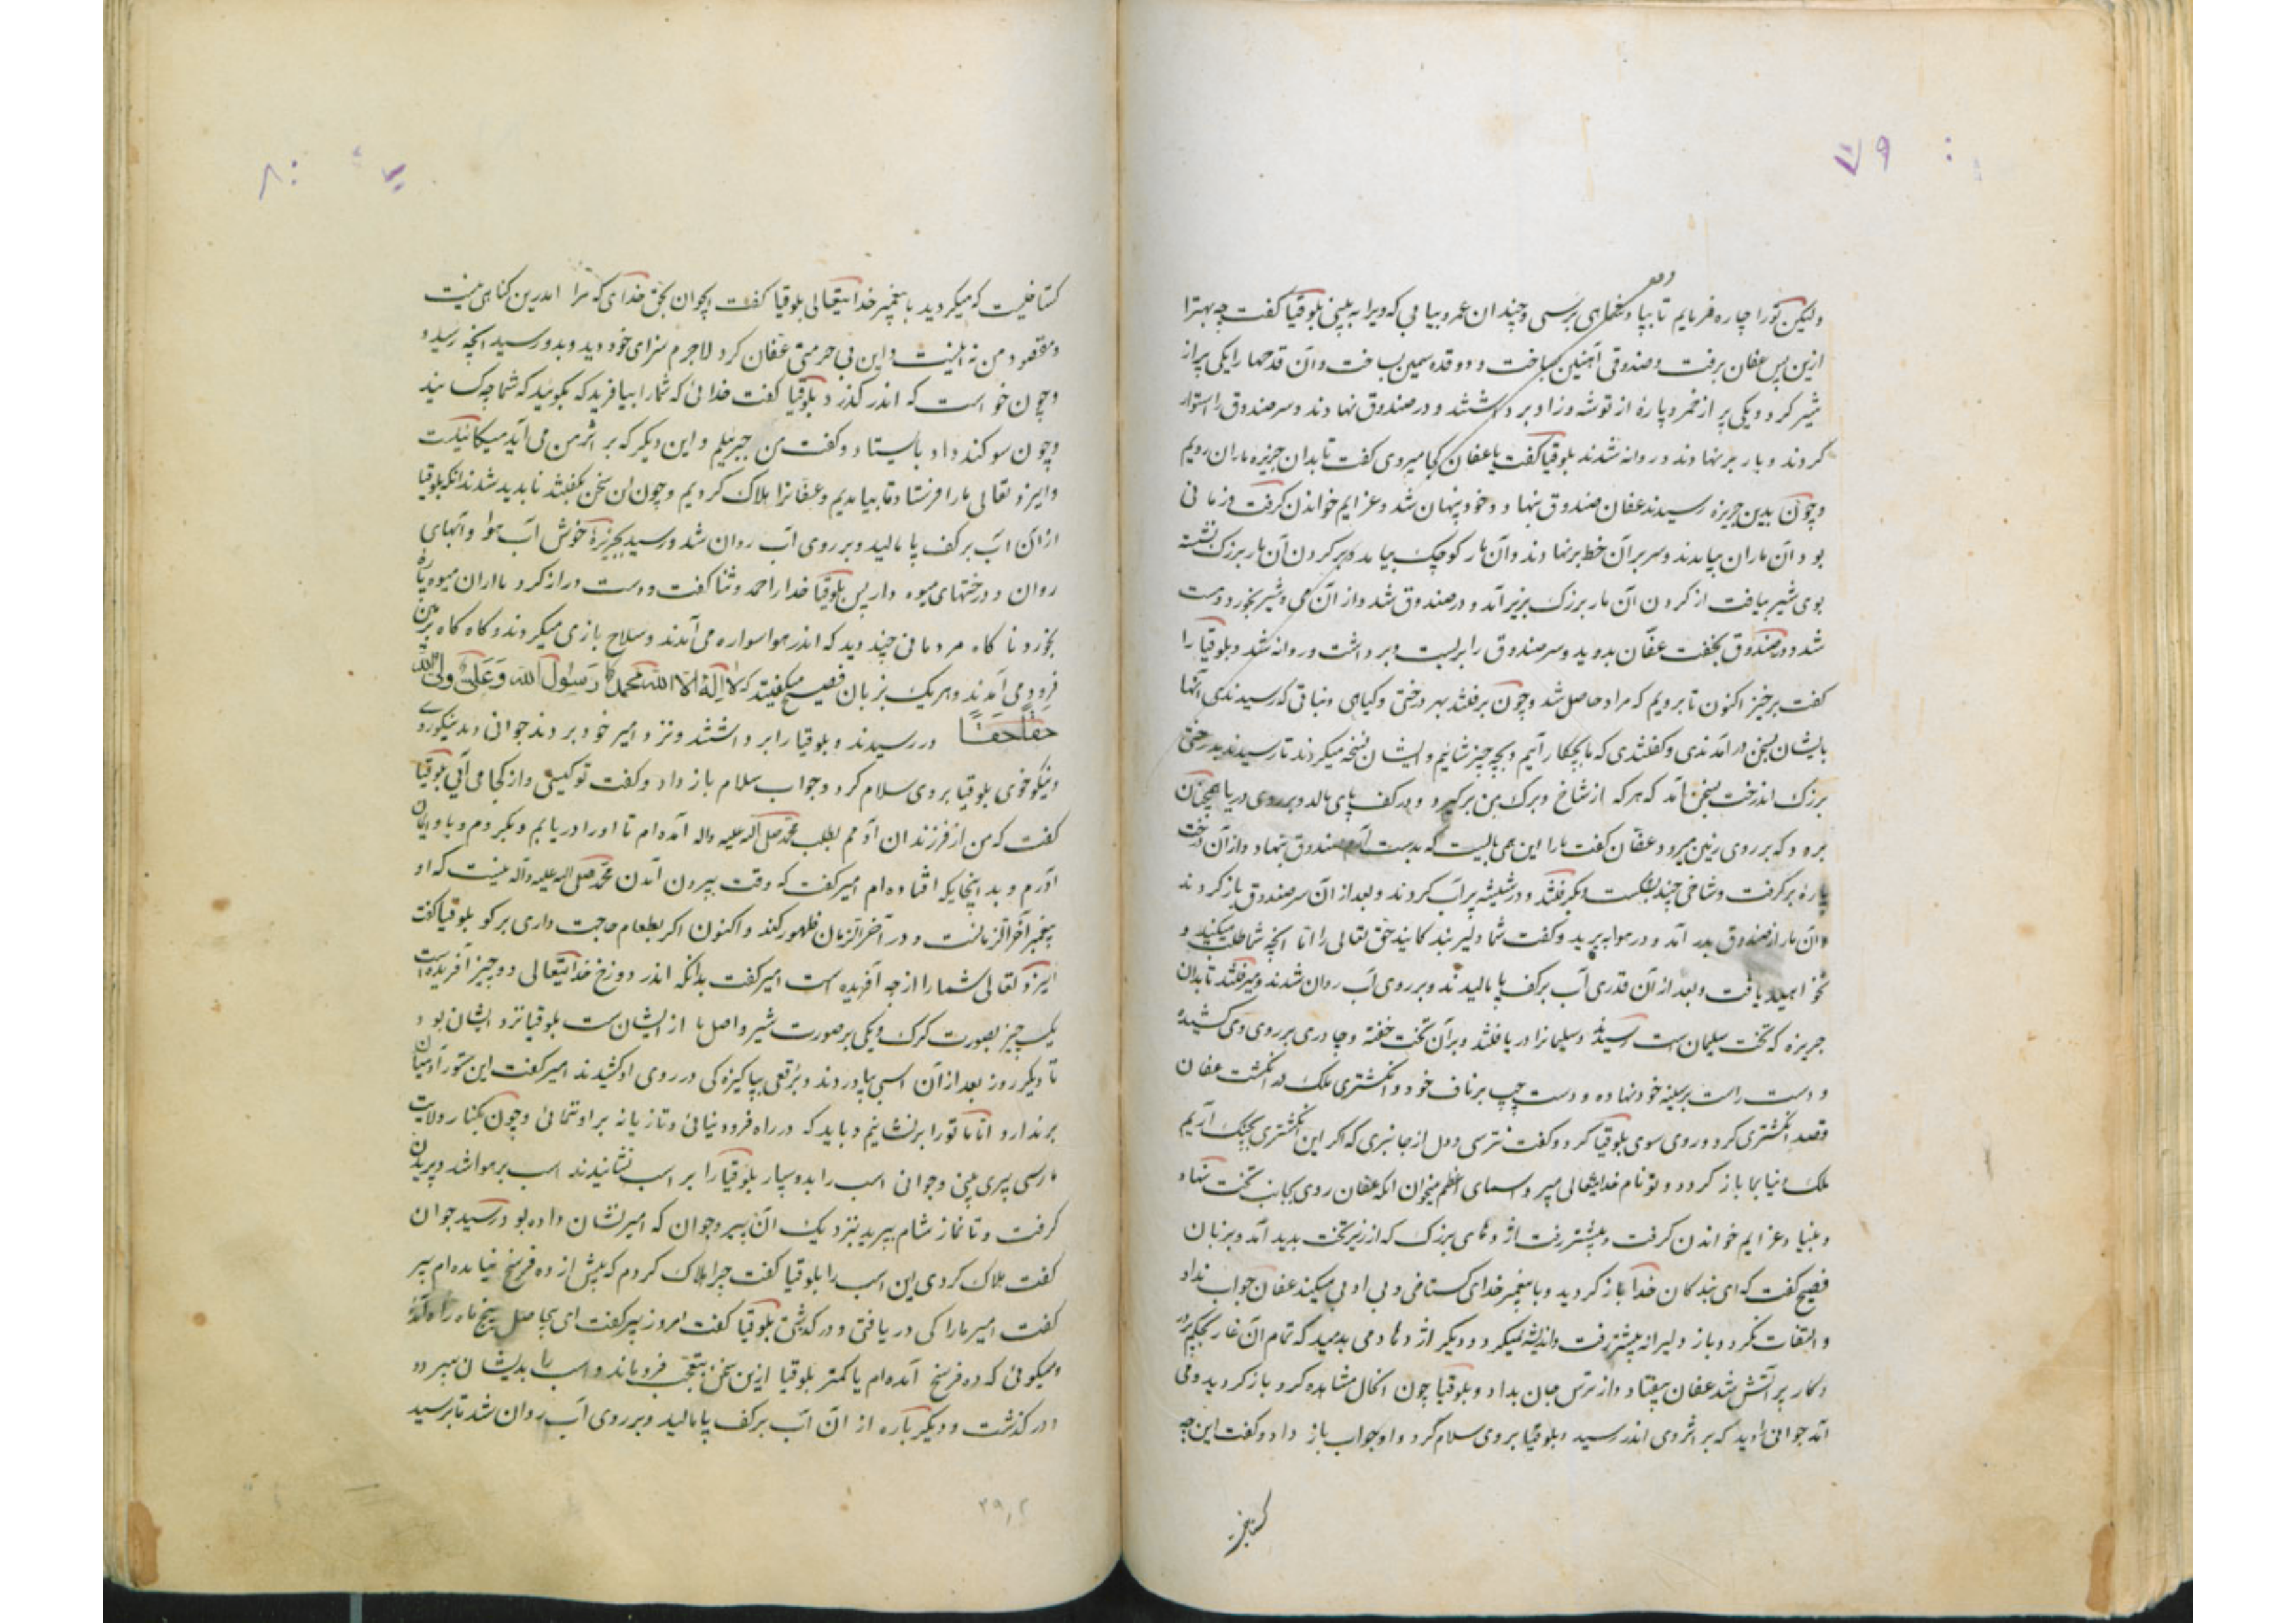 ۷۹
ولیکن تورا چاره فرمایم تا بپا و بملکهای برسی و چندان عمر بیابی که ویرا به بینی بلوقیا گفت چه بهترا
ازین پس عفان برفت و صندوقی آهنین بساخت و دو قدح سیمین بساخت و آن قدحها را یکی پر از
شیر کرد و یکی پر از خمر و پارهٔ از توشه و زاد برداشتند و در صندوق نهادند و سر صندوق را استوار
کردند و بار برنهادند و روانه شدند بلوقیا گفت یا عفان کجا میروی گفت تا بدان جزیره ماران رویم
و چون بدین جزیره رسیدند عفان صندوق بنهاد و خود پنهان شد و عزایم خواندن گرفت و زمانی
بود آن ماران بیامدند و سر بر آن خط برنهادند و آن مار کوچک بیامد و بر کردن آن مار بزرک نشسته
بوی شیر بیافت از کردن آن مار بزرک بزیر آمد و در صندوق شد و از آن می و شیر بخورد و مست
شد و در صندوق بخفت عفان بدوید و سر صندوق را بربست و برداشت و روانه شد و بلوقیا را
گفت برخیز اکنون تا برویم که مراد حاصل شد و چون برفتند بهر درختی و کیاهی و نباتی که رسیدندی آنها
بایشان بسخن در آمدندی و گفتندی که ما بچکار آئیم و بچه چیز شائیم و ایشان نسخه میکردند تا رسیدند بدرختی
بزرک آندرخت بسخن آمد که هر که از شاخ و برک من برگیرد و بر کف پای مالد و بر روی دریا همچنان
برود که بر روی زمین میرود عفان گفت ما را این همی بایست که بدست آمد صندوق بنهاد و از آن درخت
پارهٔ برگرفت و شاخی چند بشکست و بگرفتند و در شیشه پر آب کردند و بعد از آن سر صندوق باز کردند
و آن مار از صندوق بدر آمد و در هوا بپرید و گفت شما دلیر بندکانیند حق تعالی را اما انچه شما طلب میکنید و
نخواهید یافت و بعد از آن قدری آب بر کف پا مالیدند و بر روی آب روان شدند و میرفتند تا بدان
جزیره که تخت سلیمان است رسیدند و سلیمانرا دریافتند و بر آن تخت خفته و چادری بر روی وی کشیده
و دست راست بر سینه خود نهاده و دست چپ بر ناف خود و انکشتری ملک در انکشت عفان
قصد انکشتری کرد و روی سوی بلوقیا کرد و گفت نترسی و دل از جا نبری که اکر این انکشتری بچنک آریم
ملک دنیا بما باز کردد و تو نام خدایتعالی میبر و اسمای اعظم میخوان انکه عفان روی بجانب تخت نهاد
و بنیاد عزایم خواندن گرفت و پیشتر رفت اژدهای بزرک که از زیر تخت بدید آمد و بزبان
فصیح گفت که ای بندکان خدا باز کردید و با پیغمبر خدای کستاخی و بی ادبی میکنید عفان جواب نداد
و التفات نکرد و باز دلیرانه پیشتر رفت و اندیشه نمیکرد و دیکر اژدها دمی بدمید که تمام آن غار
پر آتش شد عفان بیفتاد و از ترس جان بداد و بلوقیا چون انحال مشاهده کرد باز کردید و می
آمد جوانی را دید که بر اثر وی اندر رسید و بلوقیا بر وی سلام کرد و او جواب باز داد و گفت این چه
۸۰
کستاخیست که میکردید با پیغمبر خدایتعالی بلوقیا گفت ایجوان بحق خدای که مرا اندرین کناهی نیست
و مقصود من نه اینست و این بی حرمتی عفان کرد لاجرم سزای خود دید و بدو رسید انچه رسید و
و چون خواست که اندر کذرد بلوقیا گفت خدائی که شما را بیافرید که بکوئید که شما چه کسانید
و چون سوکند داد بایستاد و گفت من جبرئیلم و این دیکر که بر اثر من می آید میکائیلست
و ایزد تعالی ما را فرستاد تا بیامدیم و عفانرا هلاک کردیم و چون این سخن بکفتند ناپدید شدند انکه بلوقیا
از آن آب بر کف پا مالید و بر روی آب روان شد و رسید بجزیرهٔ خوش آب هوا و آبهای
روان و درختهای میوه دار پس بلوقیا خدا را حمد و ثنا گفت و دست دراز کرد و از آن میوه پاره
بخورد ناکاه مردمانی چند دید که اندر هوا سواره می آمدند و سلاح بازی میکردند و کاه کاه بزمین
فرود می آمدند و هر یک بزبان فصیح میگفتند که لا اله الا الله محمد رسول الله و علی ولی الله
حقا حقا در رسیدند و بلوقیا را برداشتند و نزد امیر خود بردند جوانی دید نیکوروی
و نیکو خوی بلوقیا بر وی سلام کرد و جواب سلام باز داد و گفت تو کیستی و از کجا می آیی بلوقیا
گفت که من از فرزندان آدمم بطلب محمد صلی الله علیه واله آمده ام تا او را دریابم و بکردم و باو ایمان
آورم و بدینجایکه افتاده ام امیر گفت که وقت بیرون آمدن محمد صلی الله علیه واله نیست که او
پیغمبر آخر الزمانست و در آخر الزمان ظهور کند و اکنون اکر بطعام حاجت داری برکو بلوقیا گفت
ایزد تعالی شما را از چه آفریده است امیر گفت بدانکه اندر دوزخ خدایتعالی دو چیز آفریده است
یک چیز بصورت کرک و یکی بر صورت شیر و اصل ما از ایشانست بلوقیا نزد ایشان بود
تا دیکر روز بعد از آن اسبی بیاوردند و برقعی پاکیزه کی در روی او کشیدند امیر گفت این ستور آدمیان
برندارد اما ما تو را برنشانیم و باید که در راه فرود نیائی و تازیانه بر او ننمائی و چون بکنار ولایت
ما رسی پیری بینی و جوانی اسب را بدو سپار بلوقیا را بر اسب نشانیدند اسب بر هوا شد و پریدن
گرفت و تا نماز شام بپرید بنزدیک آن پیر و جوان که امیر نشان داده بود رسید جوان
گفت هلاک کردی این اسب را بلوقیا گفت چرا هلاک کردم که بیش از ده فرسخ نیامده ام پیر
گفت امیر ما را کی دریافتی و در کذشتی بلوقیا گفت امروز پیر گفت ای بیحاصل پنج ماه راه آمدهٔ
و میکوئی که ده فرسخ آمده ام یا کمتر بلوقیا ازین سخن بتعجب فروماند و اسب را بدیشان سپرد و
در کذشت و دیکر باره از آن آب بر کف پا مالید و بر روی آب روان شد تا برسید